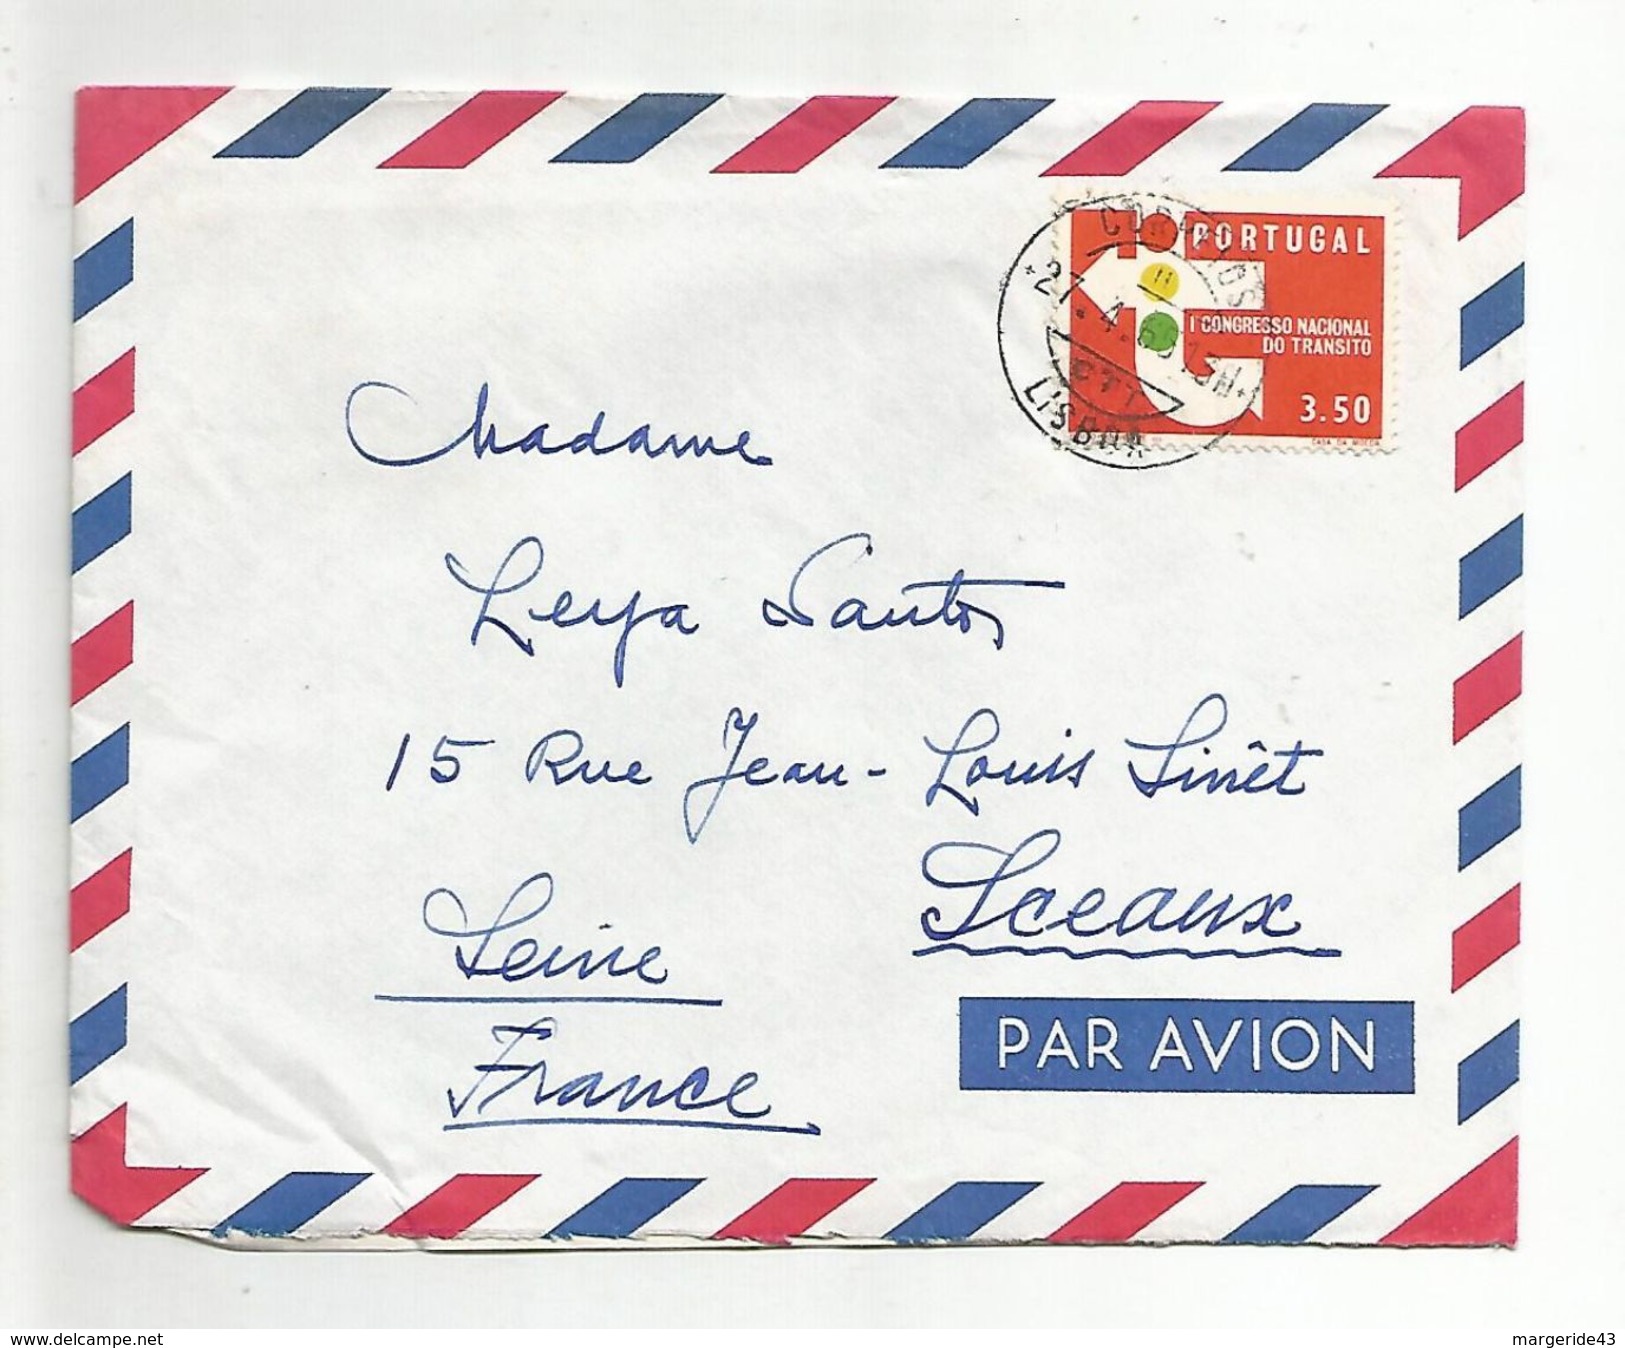 PORTUGAL
I CONGRESSO NACIONAL
DO TRANSITO
3.50
CASA DA MOEDA
CORREIOS
27.4.65 13H
CTT
LISBOA
Madame
Leya Santos
15 Rue Jean-Louis Sinêt
Sceaux
Seine
France
PAR AVION
www.delcampe.net
margeride43